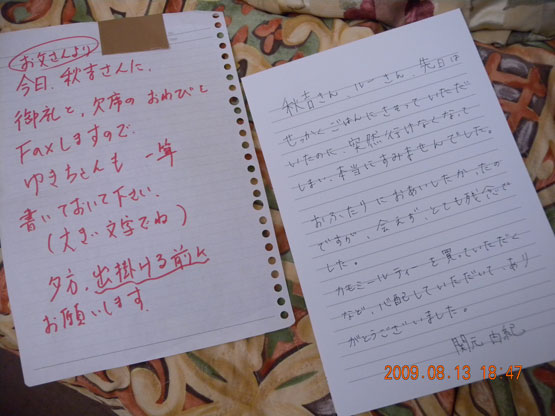 お父さんより
今日、秋吉さんに、
御礼と、欠席のおわびと
Faxしますので
ゆきちゃんも 一筆
書いておいて下さい.
(大きい文字でね)
夕方、出掛ける前に
お願いします.
秋吉さん、ルーさん、先日は
せっかくごはんにさそっていただ
いたのに、突然行けなくなって
しまい、本当にすみませんでした。
おふたりにおあいしたかったの
ですが、会えず、とても残念で
した。
カモミールティーを買っていただく
など、心配していただいて、あり
がとうございました。
由紀
2009.08.13 16:47